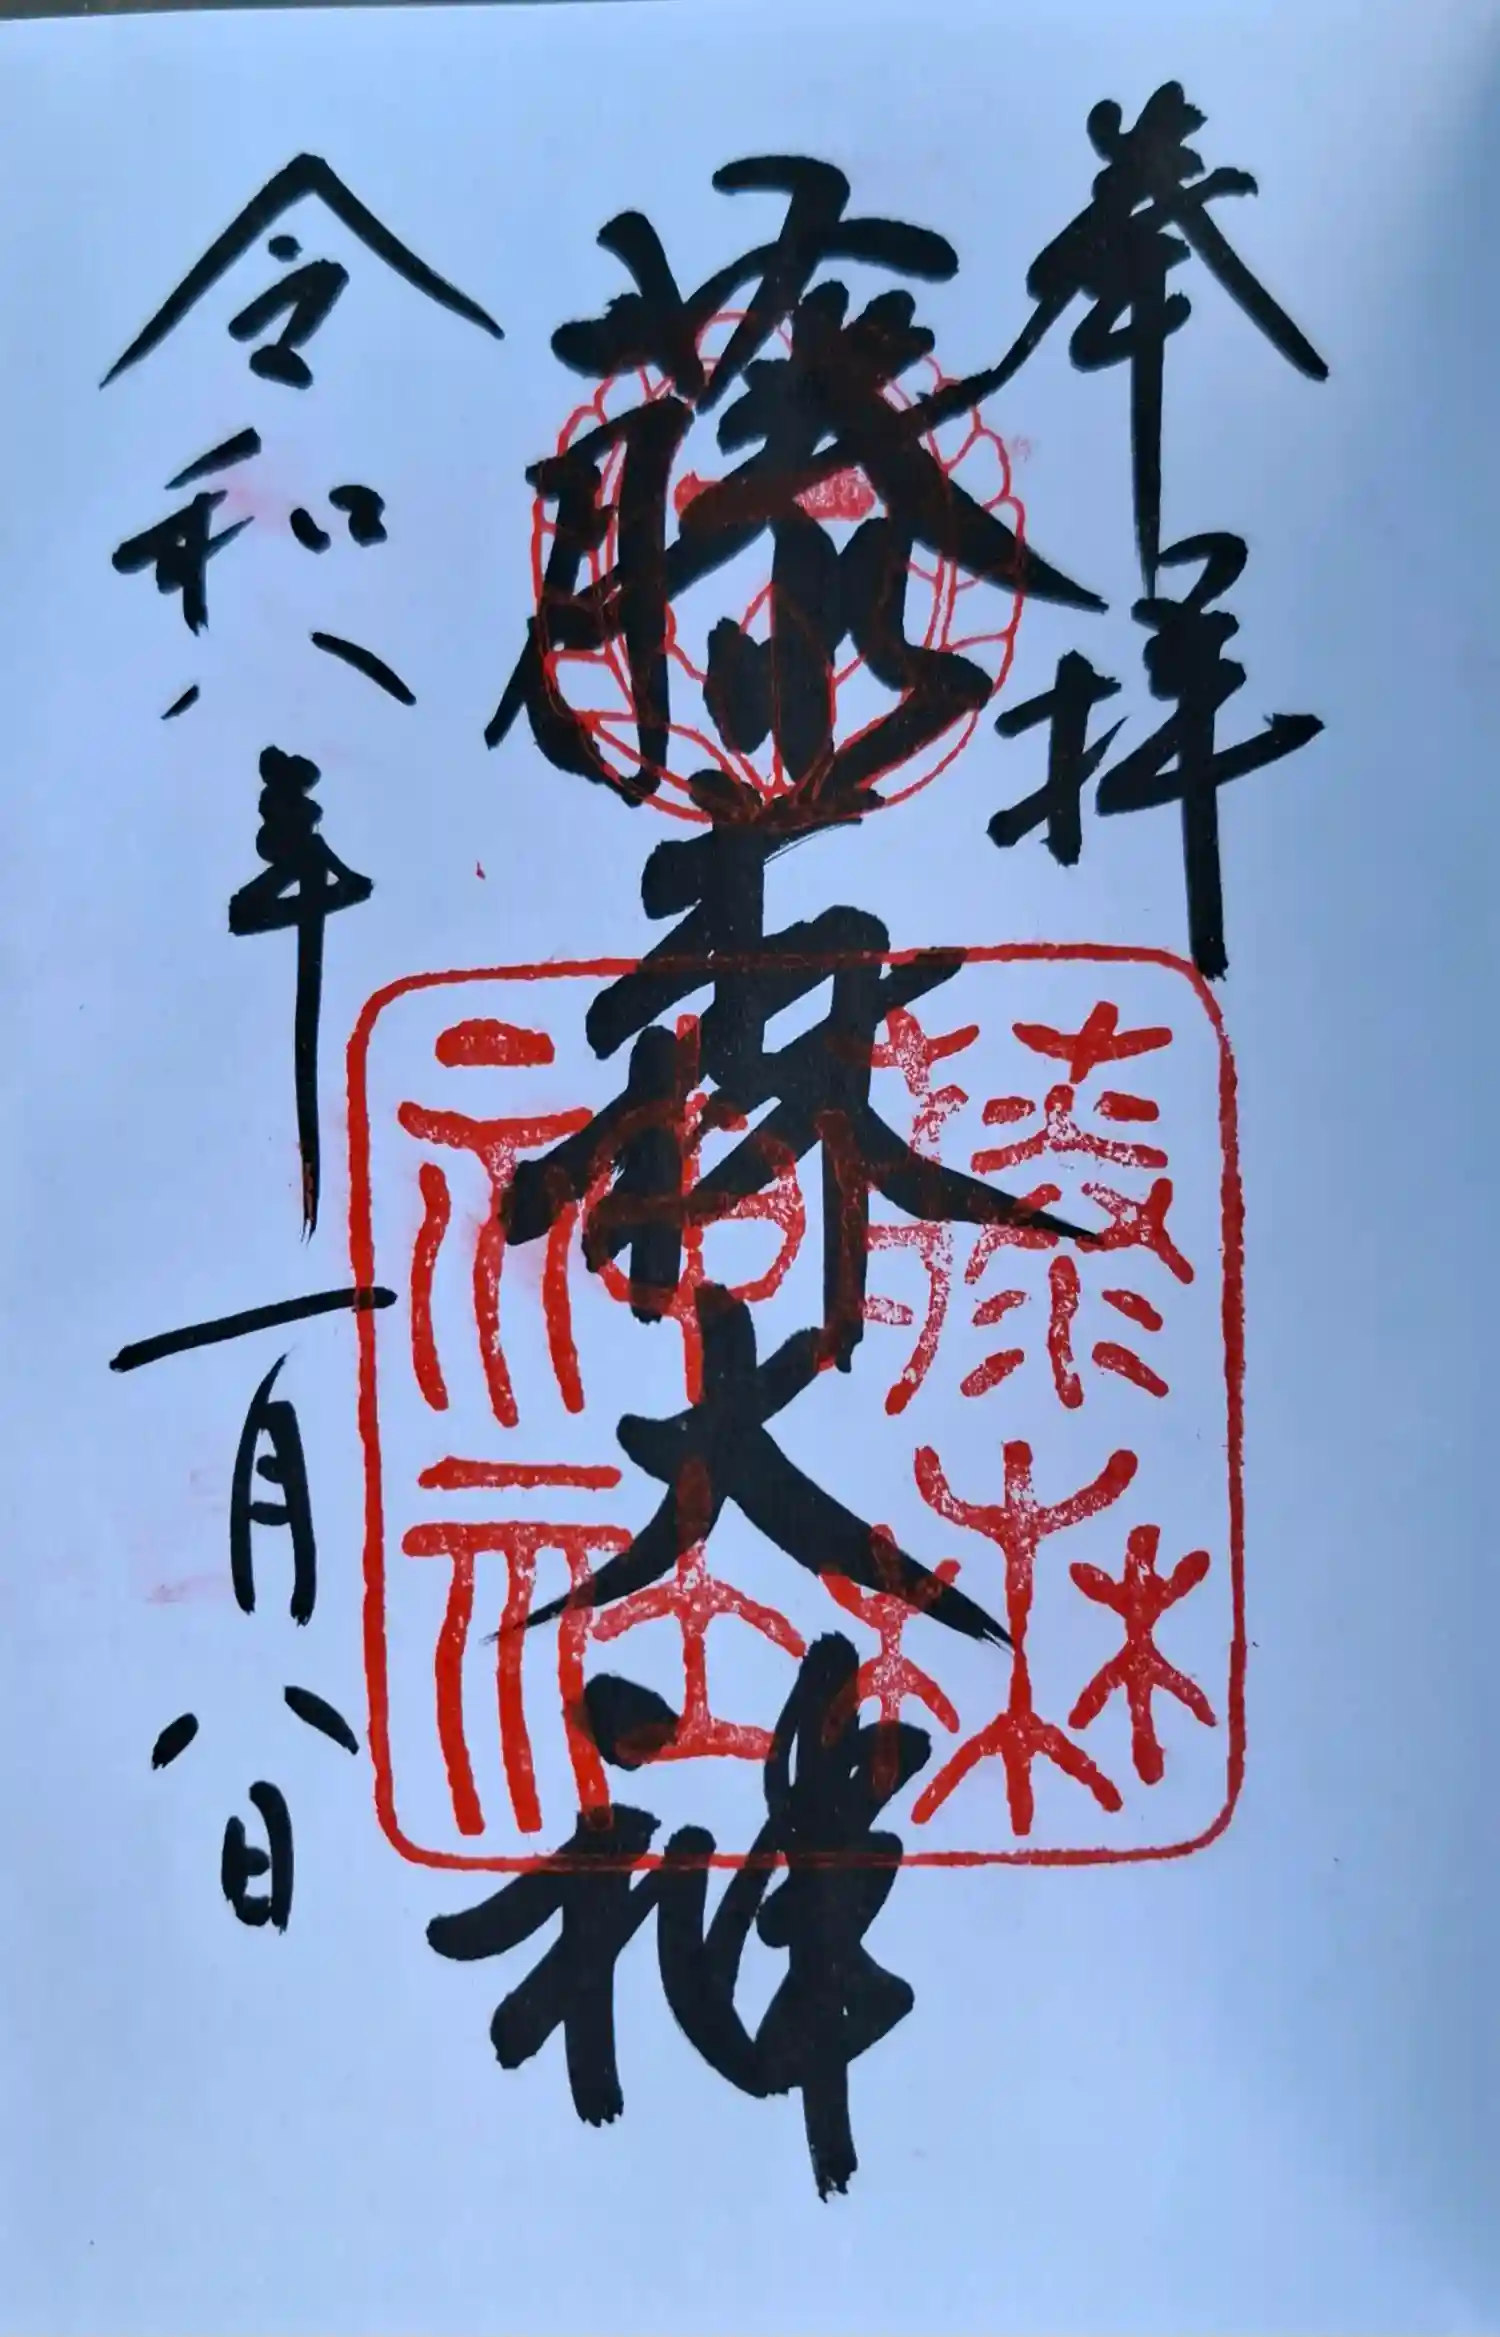 奉拝
藤森大神
藤森神社
令和八年一月八日